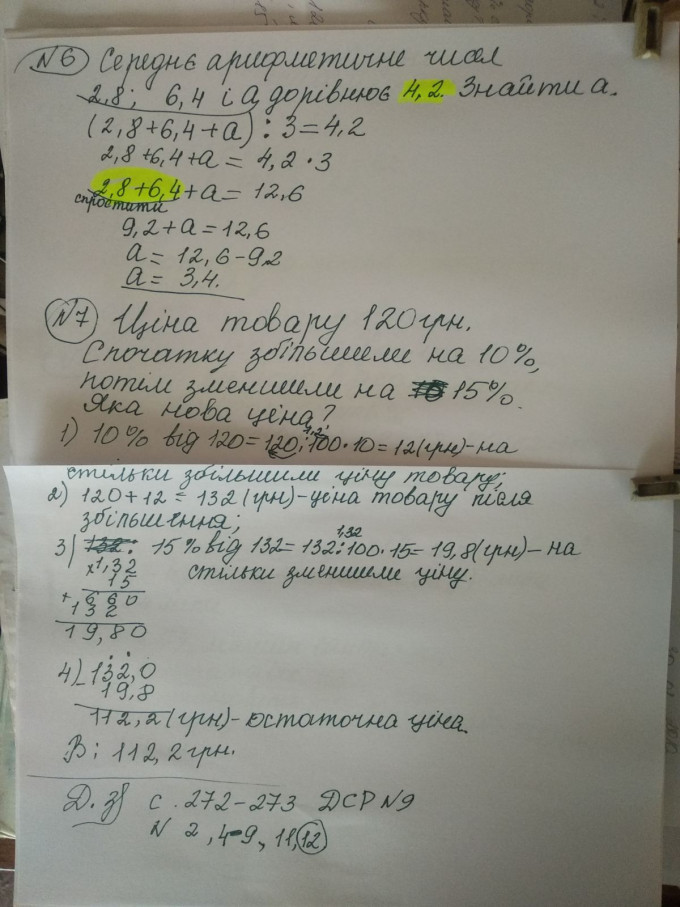 №6 Середнє арифметичне чисел
2,8; 6,4 і а дорівнює 4,2. Знайти а.
(2,8+6,4+а) : 3 = 4,2
2,8+6,4+а = 4,2 · 3
2,8+6,4+а = 12,6
спростити
9,2+а = 12,6
а = 12,6-9,2
а = 3,4.
№7 Ціна товару 120 грн.
Спочатку збільшили на 10%,
потім зменшили на 15%.
Яка нова ціна?
1,2
1) 10% від 120 = 120:100·10 = 12 (грн) - на
стільки збільшили ціну товару;
2) 120+12 = 132 (грн) - ціна товару після
збільшення;
1,32
3) 15% від 132 = 132:100·15 = 19,8 (грн) - на
×1,32 стільки зменшили ціну.
15
+660
132
19,80
4) _132,0
19,8
112,2 (грн) - остаточна ціна.
В: 112,2 грн.
Д. з) с. 272-273 ДСР №9
N 2, 4-9, 11, 12